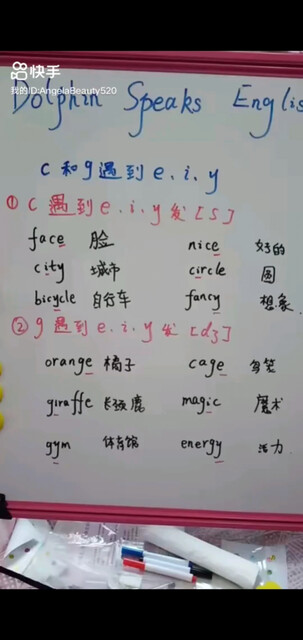 快手
我的ID:AngelaBeauty520
Dolphin Speaks Englis
c 和 g 遇到 e . i . y
① c 遇到 e . i . y 发 [s]
face 脸 nice 好的
city 城市 circle 圆
bicycle 自行车 fancy 想象
② g 遇到 e . i . y 发 [dʒ]
orange 橘子 cage 鸟笼
giraffe 长颈鹿 magic 魔术
gym 体育馆 energy 活力